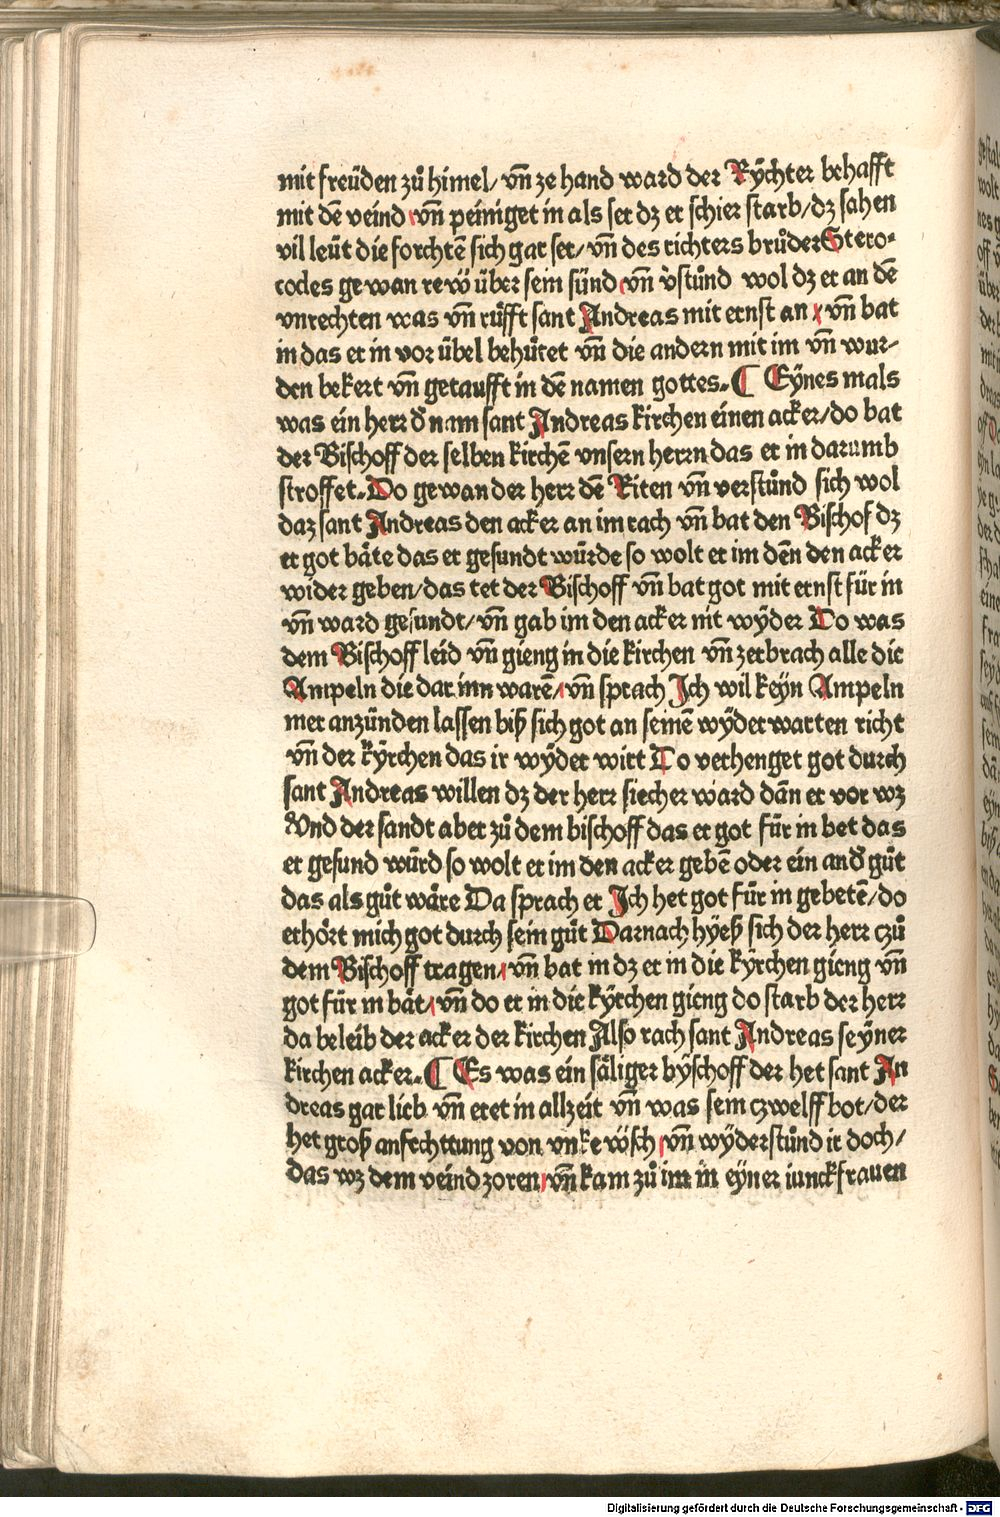 mit freüden zů himel/ vñ ze hand ward der Rÿchter behafft
mit dē veind vñ peiniget in als ser dz er schier starb/dz sahen
vil leüt die forchtē sich gar ser/ vñ des richters brůder Stero-
codes gewan rew̎ über sein sünd vñ v̀stůnd wol dz er an dē
vnrechten was vñ růfft sant Andreas mit ernst an vñ bat
in das er in vor übel behůtet vñ die andern mit im vñ wur-
den bekert vñ getaufft in dē namen gottes. ¶ Eÿnes mals
was ein herr d̕ nam sant Andreas kirchen einen acker/do bat
der Bischoff der selben kirchē vnsern herrn das er in darumb
stroffet. Do gewan der herr dē Riten vñ verstůnd sich wol
daz sant Andreas den acker an im rach vñ bat den Bischof dz
er got bäte das er gesundt würde so wolt er im dēn den acker
wider geben/das tet der Bischoff vñ bat got mit ernst für in
vñ ward gesundt/ vñ gab im den acker nit wÿder Do was
dem Bischoff leid vñ gieng in die kirchen vñ zerbrach alle die
Ampeln die dar inn warē/ vñ sprach Ich wil keÿn Ampeln
mer anzünden lassen biß sich got an seinē wÿderwarten richt
vñ der kÿrchen das ir wÿder wirt Do verhenget got durch
sant Andreas willen dz der herr siecher ward dān er vor wz
Vnd der sandt aber zů dem bischoff das er got für in bet das
er gesund würd so wolt er im den acker gebē oder ein and̕ gůt
das als gůt wäre Da sprach er Ich het got für in gebetē/do
erhört mich got durch sein gůt Darnach hÿeß sich der herr czů
dem Bischoff tragen, vñ bat in dz er in die kÿrchen gieng vñ
got für in bät, vñ do er in die kÿrchen gieng do starb der herr
da beleib der acker der kirchen Also rach sant Andreas seÿner
kirchen acker. ¶ Es was ein säliger bÿschoff der het sant An
dreas gar lieb vñ eret in allzeit vñ was sein czwelff bot/der
het groß anfechttung von vnkewsch vñ wÿderstůnd ir doch/
das wz dem veind zoren vñ kam zů im in eÿner iunckfrauen
Digitalisierung gefördert durch die Deutsche Forschungsgemeinschaft - DFG